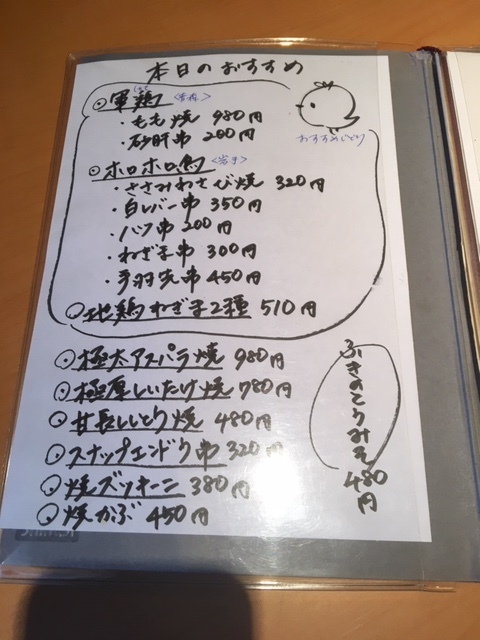 本日のおすすめ
◎軍鶏
・もも焼 980円
・砂肝串 200円
おすすめじとり
◎ホロホロ鳥 <岩手>
・ささみわさび焼 320円
・白レバー串 350円
・ハツ串 200円
・ねぎま串 300円
・手羽先串 450円
◎地鶏ねぎま2種 510円
◎極太アスパラ焼 980円
◎極厚しいたけ焼 780円
◎甘長しいとり焼 480円
◎スナップエンドウ串 320円
◎焼ズッキーニ 380円
◎焼かぶ 450円
ふきのとりみそ 480円